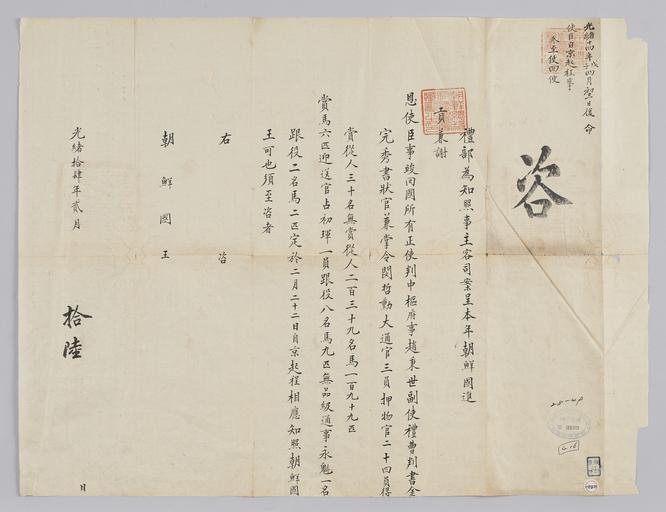 光緒十四年戊子四月初一日後 命
使臣自京起程事
咨
禮部為知照事主客司案呈本年朝鮮國進
貢兼謝
恩使臣事竣回國所有正使判中樞府事趙秉世副使禮曹判書金
完秀書狀官兼掌令閔哲勳大通官三員押物官二十四員得
賞從人三十名無賞從人二百三十九名馬一百九十九匹
賞馬六匹迎送官占初琿一員跟役八名馬九匹無品級通事永魁一名
跟役二名馬二匹定於二月二十二日自京起程相應知照朝鮮國
王可也須至咨者
右咨
朝鮮國王
光緒拾肆年貳月 拾陸 日